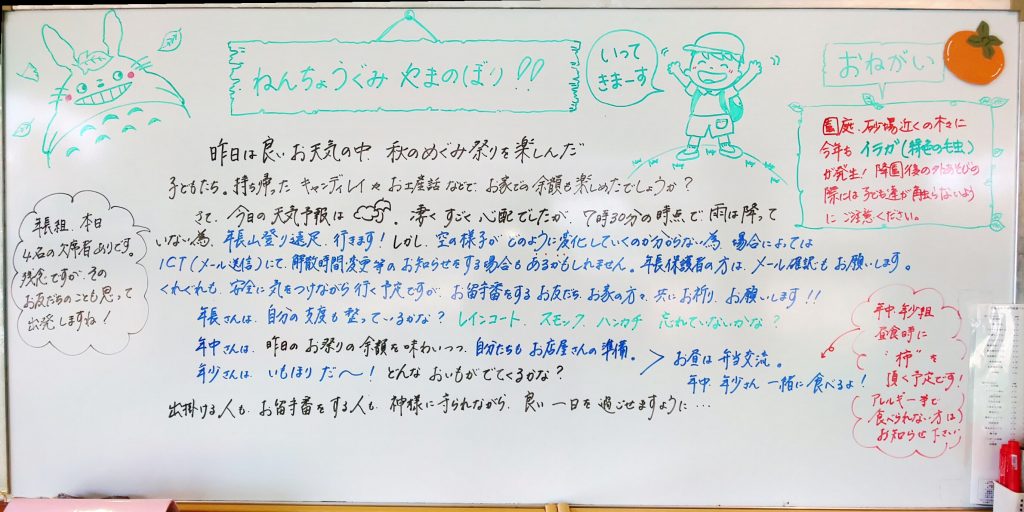 ねんちょうぐみ やまのぼり!!
いって
きまーす
おねがい
園庭、砂場近くの木々に
今年も イラガ(緑色の毛虫)
が発生! 降園後の外あそびの
際には 子ども達が触らないよう
に ご注意ください。
昨日は良いお天気の中、秋のめぐみ祭りを楽しんだ
子どもたち。持ち帰った キャンディレイや お土産話などで、お家での余韻も楽しめたでしょうか?
さて、今日の 天気予報は 。凄く すごく 心配でしたが、7時30分の時点で 雨は降って
いない為、年長山登り遠足、行きます! しかし、空の様子が どのように変化していくのか分からない為 場合によっては
ICT(メール送信)にて、解散時間変更等の お知らせをする場合も あるかもしれません。年長保護者の方は、メール確認も お願いします。
くれぐれも、安全に気をつけながら 行く予定ですが、お留守番をする お友だち、お家の方々、共に お祈り、お願いします!!
年長さんは、自分の 支度も 整っているかな? レインコート、スモック、ハンカチ 忘れていないかな?
年中さんは、昨日の お祭りの余韻を味わいつつ、自分たちも お店屋さんの 準備。
年少さんは、いもほり だ〜! どんな おいもが でてくるかな?
> お昼は 弁当交流。
年中、年少さん 一緒に食べるよ!
出掛ける人も、お留守番をする人も、神様に守られながら、良い一日を過ごせますように…
年長組、本日
4名の欠席者ありです。
残念ですが、その
お友だちのことも思って
出発しますね!
年中、年少組
昼食時に
"柿"を
頂く予定です!
アレルギー等で
食べられない方は
お知らせ下さい